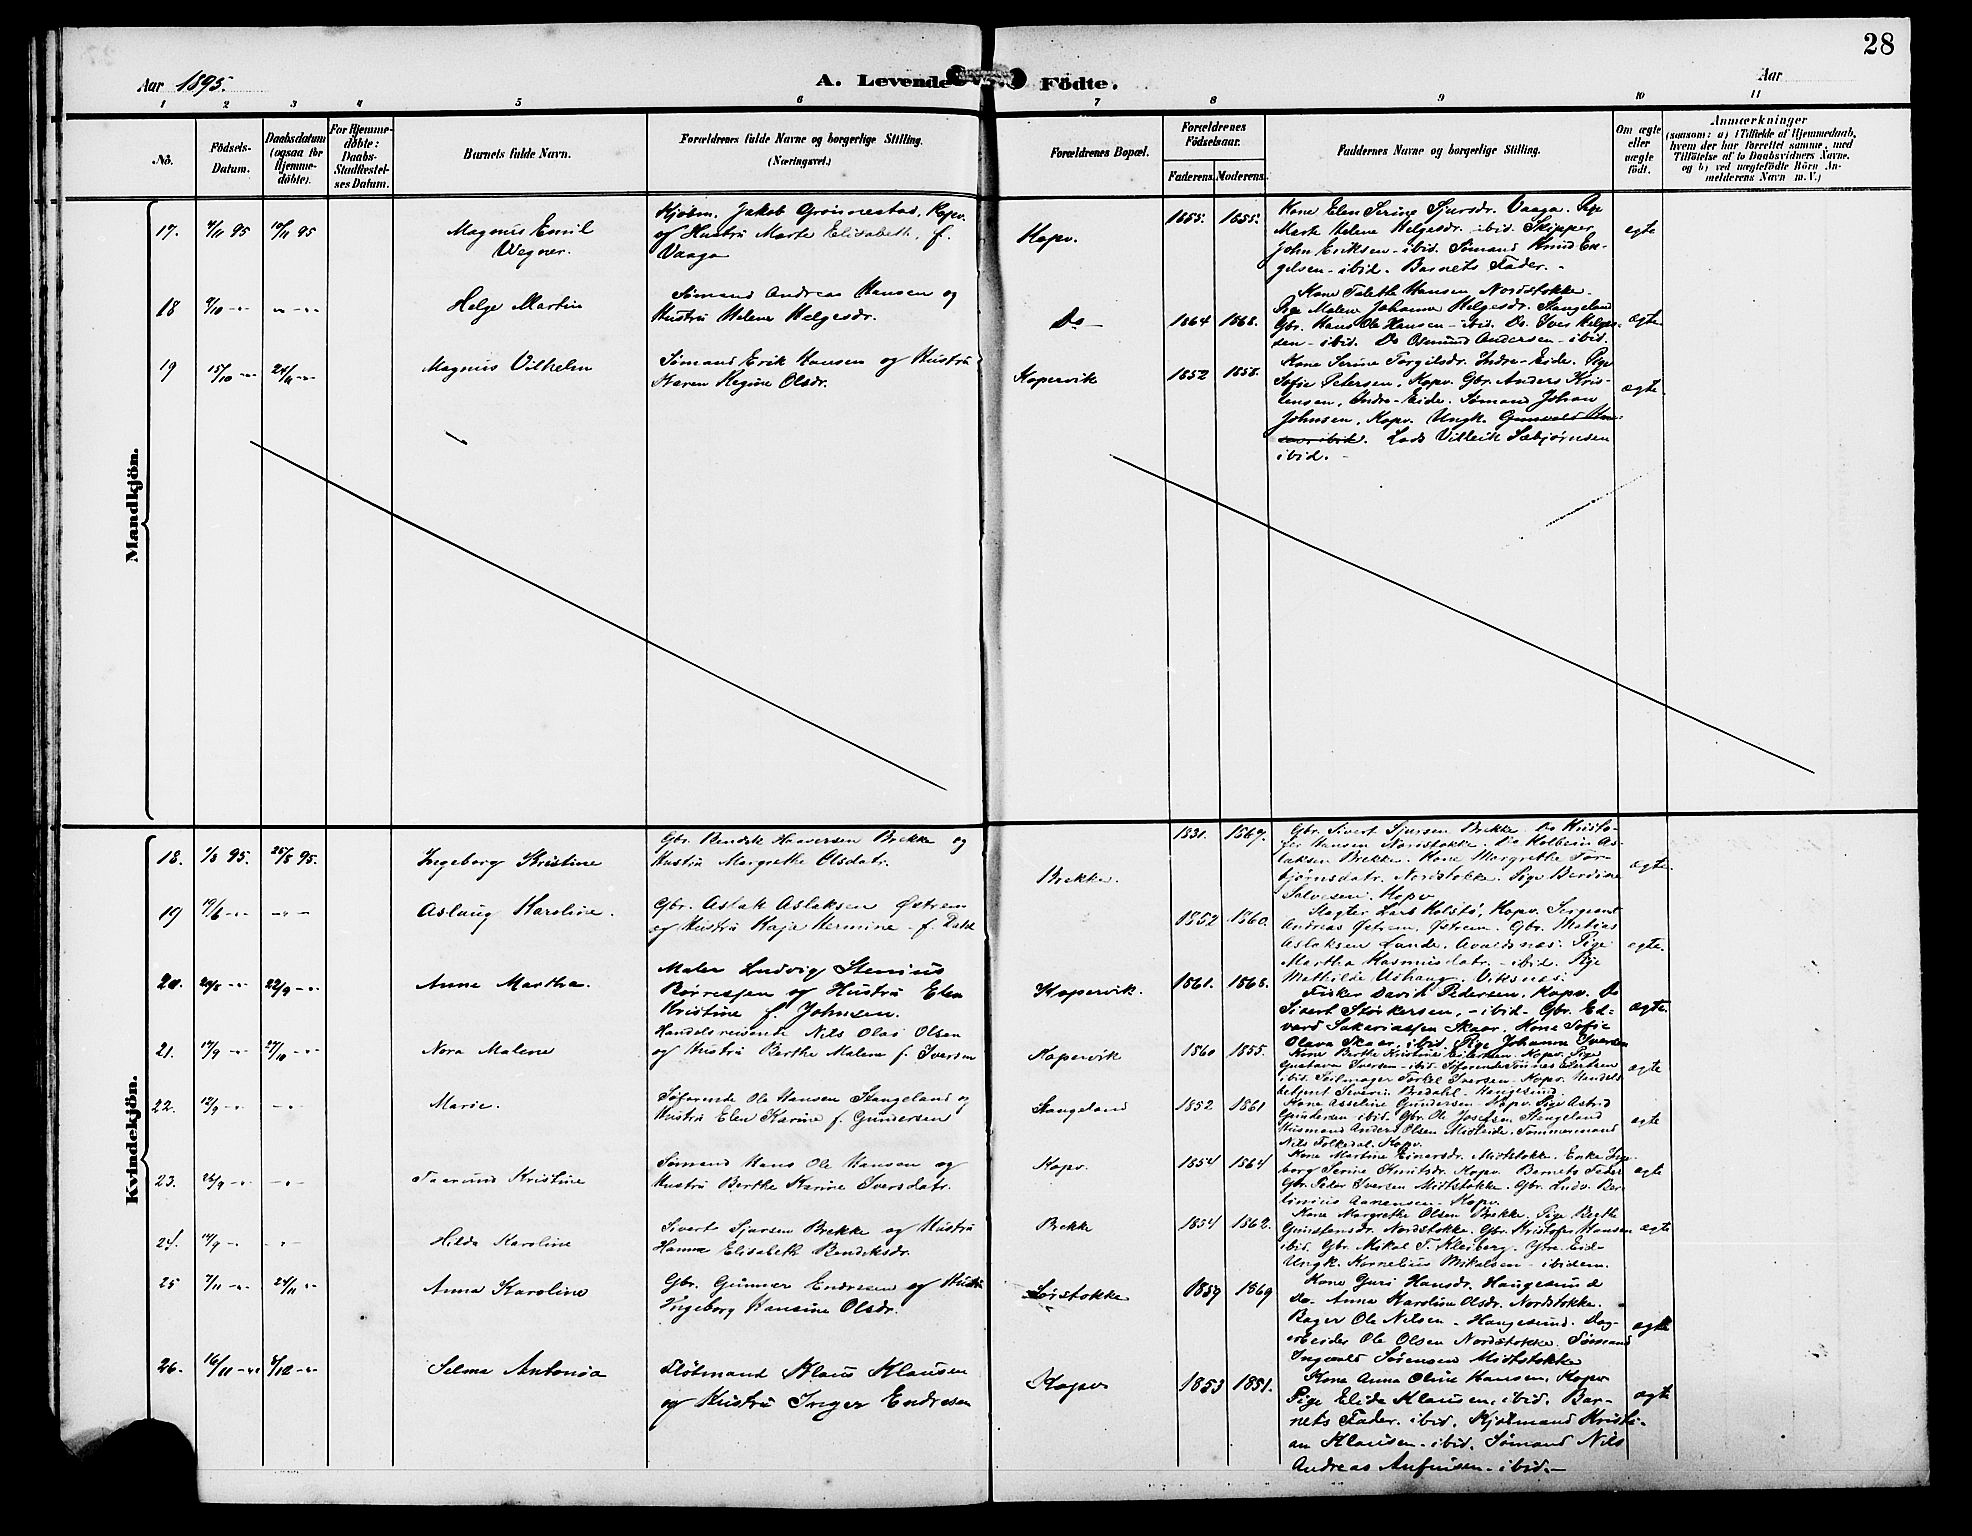 28
Aar 1895.
A. Levende Födte.
Aar
1 2 3 4 5 6 7 8 9 10 11
No.
Födsels-
Datum.
Daabsdatum
(ogsaa for
Hjemme-
döbte).
For Hjemme-
döbte:
Daabs-
Stadfæstel-
ses Datum.
Barnets fulde Navn.
Forældrenes fulde Navne og borgerlige Stilling.
(Næringsvei.)
Forældrenes Bopæl.
Forældrenes
Födselsaar.
Faderens. Moderens.
Faddernes Navne og borgerlige Stilling.
Om ægte
eller
uægte
födt.
Anmærkninger
(saasom: a) i Tilfælde af Hjemmedaab,
hvem der har forrettet samme, med
Tilföielse af to Daabsvidners Navne,
og b) ved uægtefödte Börn An-
melderens Navn m. V.)
Mandkjön.
17. 4/11 95 10/11 95
Magnus Emil
Wegner.
Kjøbm. Jakob Grønnestad, Kopv.
og Hustru Marte Elisabeth, f.
Vaaga
Kopv.
1855. 1855.
Kone Elen Serine Sjursdr. Vaaga. Pige
Marte Helene Helgesdr. ibid. Skipper
John Eriksen - ibid. Sømand Knud En-
gelsen - ibid. Barnets Fader. -
egte
18 9/10 -"- -"- -"-
Helge Martin
Sømand Andreas Hansen og
Hustru Helene Helgesdr.
Do -
1864 1868.
Kone Talette Hansen Nordstokke.
Pige Malene Johanne Helgesdr. Stangeland
Gbr. Hans Ole Hansen - ibid. Do. Iver Helge-
sen - ibid. Do Osmund Andersen - ibid.
ægte
19 15/10 -"- 24/11 -"-
Magnus Vilhelm
Sømand Erik Hansen og Hustru
Karen Regine Olsdr.
Kopervik
1852 1858.
Kone Serine Torgilsdr. Indre-Eide. Pige
Sofie Petersen, Kopv. Gbr. Anders Kris-
tensen, Indre-Eide. Sømand Johan
Johnsen, Kopv. Ungk. Gunvald
ibid. Lods Villeik Sæbjørnsen
ibid. -
ægte
Kvindekjön.
18. 1/8 95. 25/8 95.
Ingeborg Kristine
Gbr. Bendik Haaversen Brekke og
Hustru Margrethe Olsdatr.
Brekke.
1831. 1867.
Gbr. Sivert Sjursen Brekke. Do Kristo-
fer Hansen Nordstokke. Do Kolbein As-
laksen Brekke. Kone Margrethe Tor-
bjørnsdatr. Nordstokke. Pige Berdine
Salvesen. Kopv
ægte.
19 19/6 -"- -"-
Aslaug Karoline.
Gbr. Aslak Aslaksen Østrem
og Hustru Kaja Hermine - f.
1852 1860.
Slagter Lars Holstø, Kopv. Sergeant
Andreas Østrem, Østrem. Gbr. Matias
Aslaksen Sande, Avaldsnes. Pige
Martha Rasmusdatr. - ibid. Pige
Mathilde Ushaug, Viksnes.
ægte.
20. 24/8 -"- 22/9 -"-
Anna Martha.
Maler Ludvig Stenius
Børresen og Hustru Elen
Kristine f. Johnsen.
Kopervik.
1861. 1868.
Fisker David Pedersen, Kopv. Do
Sivert Størkersen, - ibid - Gbr. Ed-
vard Sakariassen Skaar. Kone Sofie
Olava Skaar, ibid. Pige Johanne Iversen
ægte.
21. 17/9 -"- 27/10 -"-
Nora Malene
Handelsreisende Nils Olai Olsen
og Hustru Berthe Malene f. Iversen
Kopervik
1860 1855.
Kone Berthe Kristine Eilertsen - Kopv. Pige
Gustava Iversen - ibid. Søfarende Tønnes Eilertsen
ibid. Seilmager Torkel Iversen - Kopv. Handels
betjent Severin Bredahl - Haugesund.
ægte
22. 12/9 -"- -"-
Marie.
Søfarende Ole Hansen Stangeland og
Hustru Elen Karine f. Gundersen
Stangeland
1852 1861
Kone Asseline Gundersen - Kopv. Pige Astrid
Gundersen ibid. Gbr. Ole Josefsen Stangeland
Husmand Anders Olsen Midteide. Tømmermand
Nils Folkedal. Kopv.
ægte
23. 26/9 -"- -"-
Taarund Kristine
Sømand Hans Ole Hansen og
Hustru Berthe Karine Iversdatr.
Kopv.
1854 1864
Kone Martine Einersdr. Midtstokke. Enke Inge-
borg Serine Knutsdr. Kopv. Barnets Fader
Gbr. Peder Iversen Midtstokke. Gbr. Ludv. Ber-
tinius Aanensen - Kopv.
ægte
24. 14/9 -"- -"-
Hilda Karoline
Sivert Sjursen Brekke og Hustru
Hanna Elisabeth Bendiksdr.
Brekke
1854 1862.
Kone Margrethe Olsen Brekke. Pige Berthe
Gunstensdr. Nordstokke. Gbr. Kristofer Hansen
ibid. Gbr. Mikal T. Kleiberg. Ytre Eid-
Ungk. Kornelius Mikalsen - ibidem.
ægte
25 7/11 -"- 24/11 -"-
Anna Karoline
Gbr. Gunnar Endresen og Hustru
Ingeborg Hansine Olsdr.
Sørstokke
1859 1869
Kone Guri Hansdr. Haugesund
Do. Anna Karoline Olsdr. Nordstokke.
Bager Ole Nilsen - Haugesund. Dag-
arbeider Ole Olsen Nordstokke. Sømand
Ingvald Sørensen Midtstokke
ægte
26. 16/11 -"- 8/12 -"-
Selma Antonia
Sømand Klaus Klausen
og Hustru Inger Endresen
Kopv
1853 1851.
Kone Anna Oline Hansen, Kopv
Pige Elida Klausen, ibid. Bar-
nets Fader. ibid. Kjømand Kristi-
an Klausen - ibid. Sømand Nils
Andreas Anfinsen - ibid. -
ægte